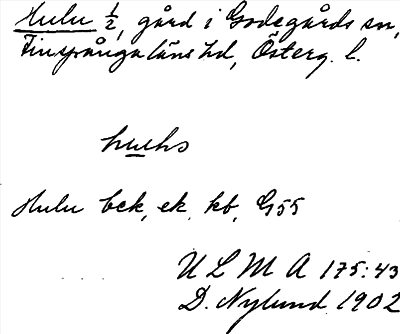 Hulu ½, gård i Godegårds sn,
Finspånga läns hd, Österg. l.
huhs
Hulu bck, ek, kb, G55
ULMA 175:43
D. Nylund 1902